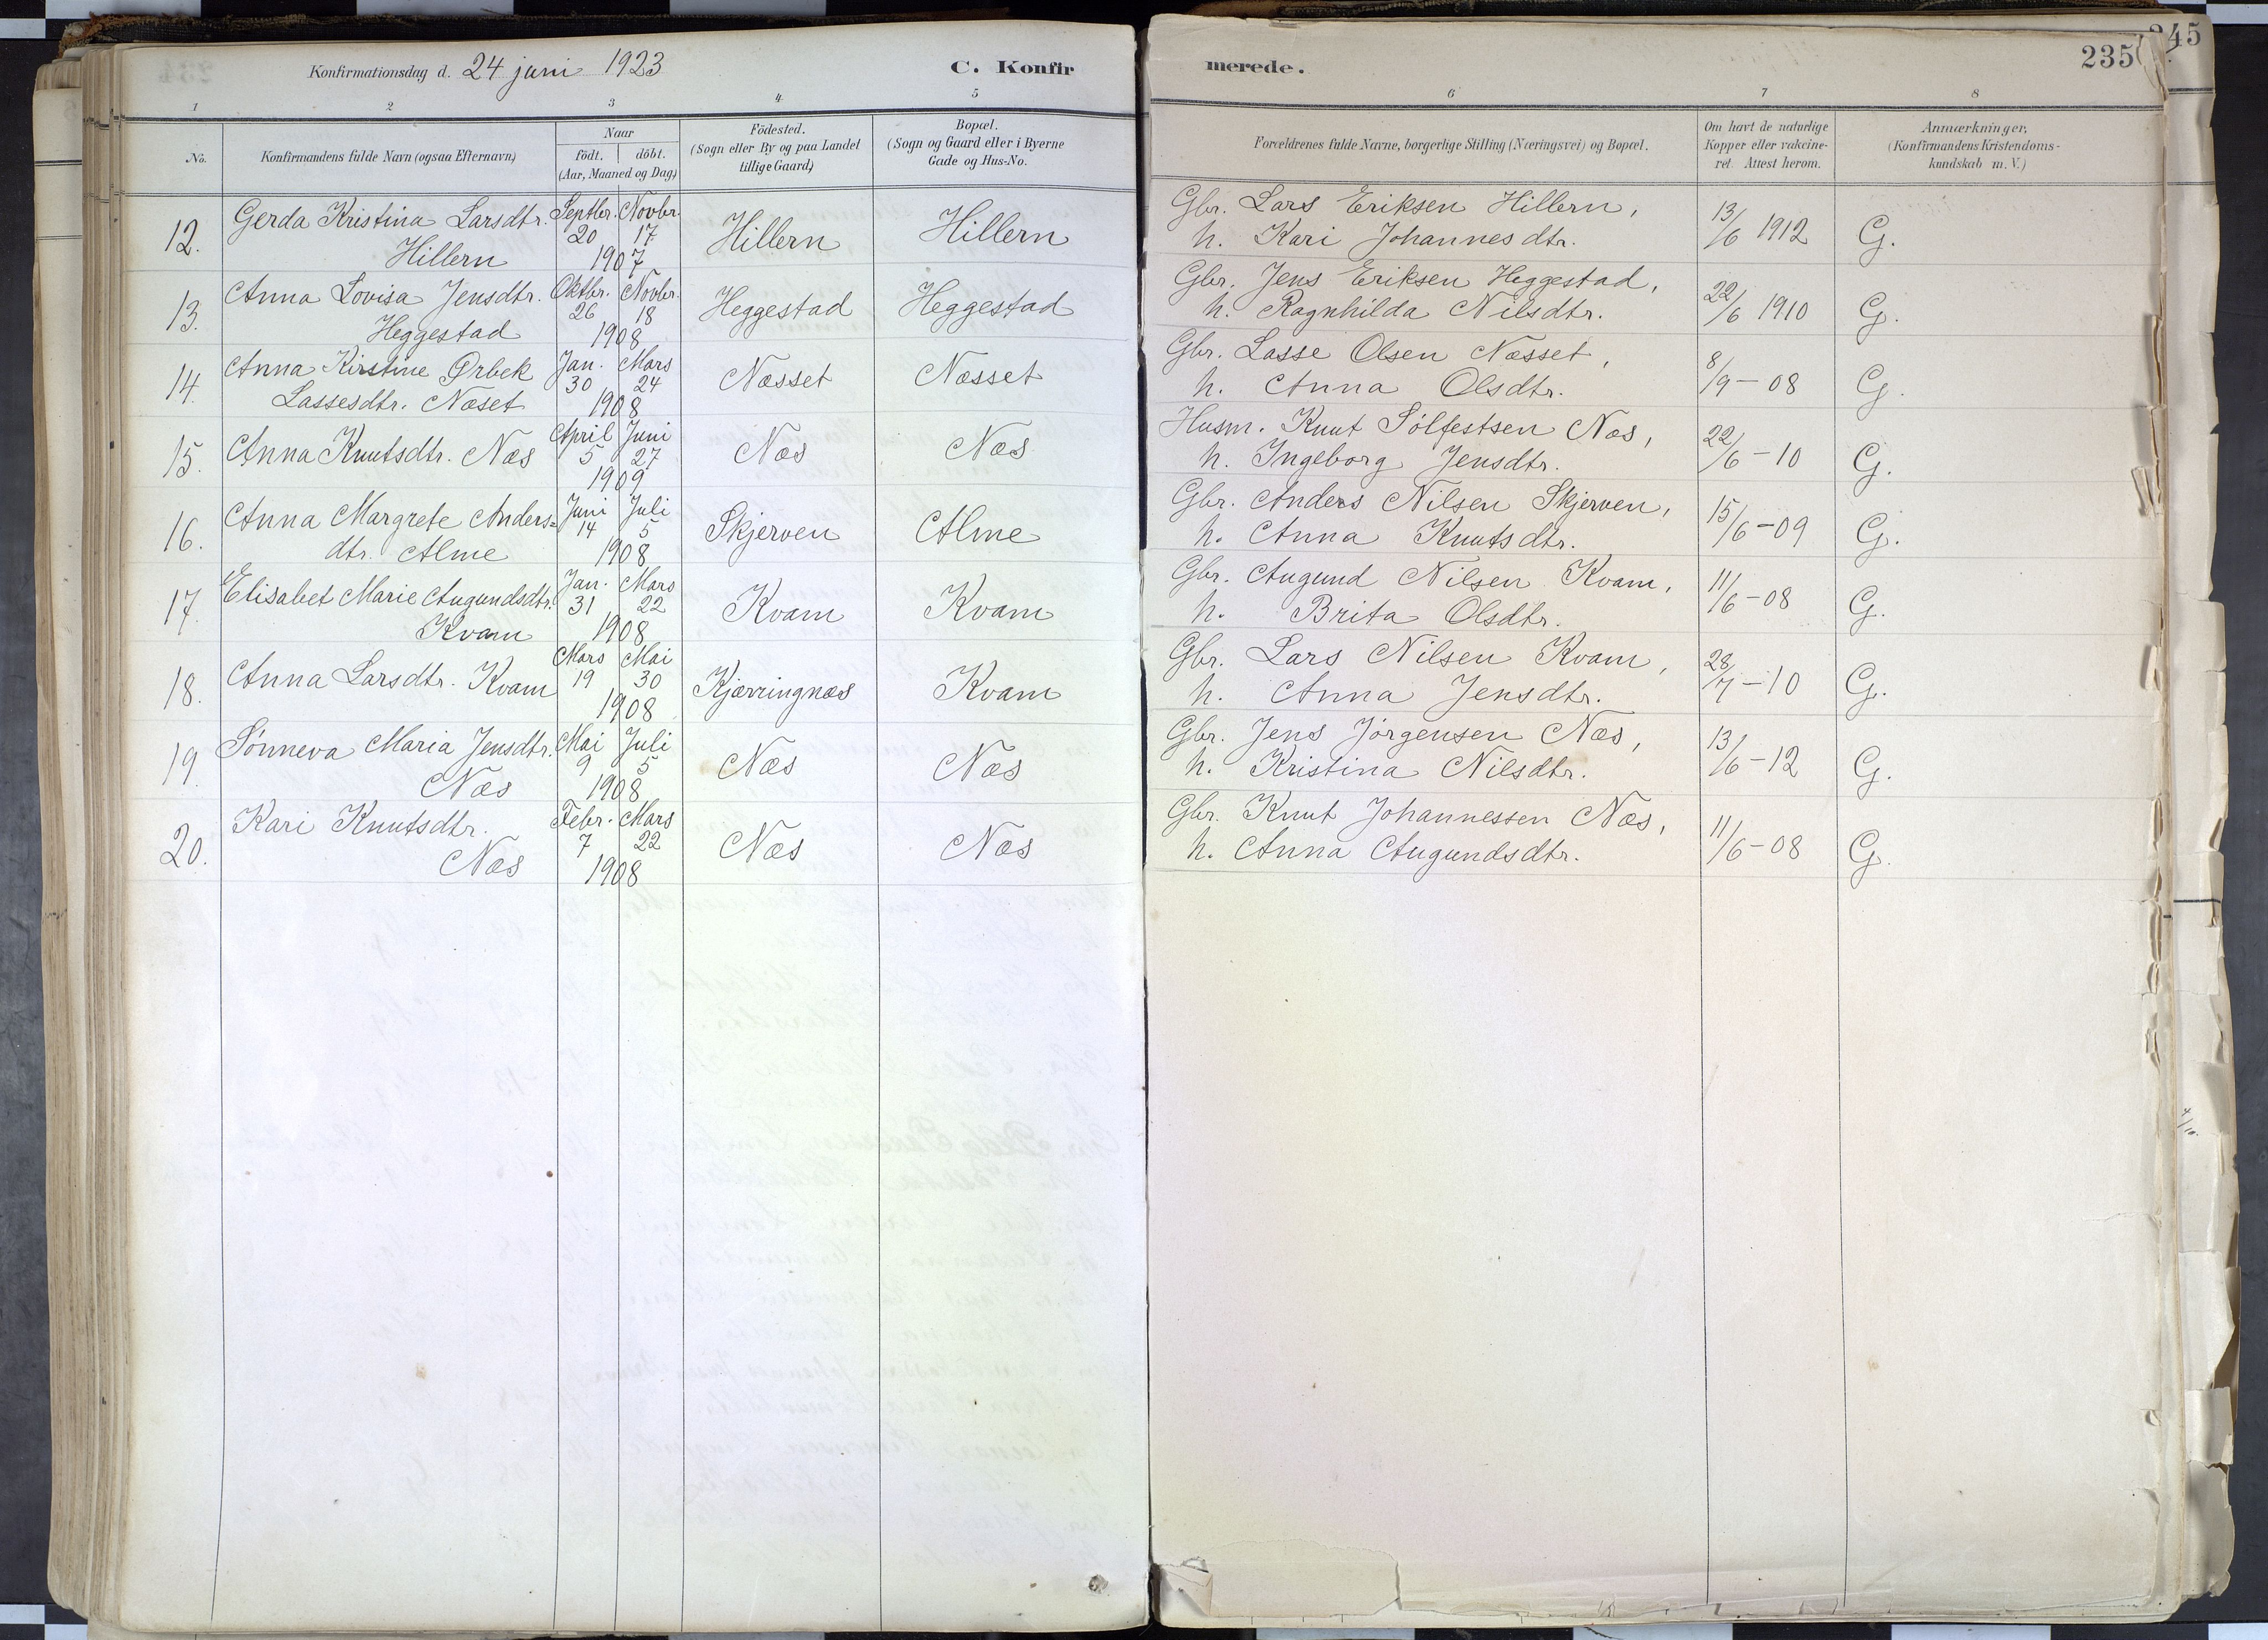 Konfirmationsdag d. 24 juni 1923
C. Konfir
merede.
235
245
1 2 3 4 5 6 7 8
No.
Konfirmandens fulde Navn (ogsaa Efternavn)
Naar
födt. döbt.
(Aar, Maaned og Dag)
Födested.
(Sogn eller By og paa Landet
tillige Gaard)
Bopæl.
(Sogn og Gaard eller i Byerne
Gade og Hus-No.
Forældrenes fulde Navne, borgerlige Stilling (Næringsvei) og Bopæl.
Om havt de naturlige
Kopper eller vakcine-
ret. Attest herom.
Anmærkninger,
(Konfirmandens Kristendoms-
kundskab m. V.)
12. Gerda Kristina Larsdtr. Septbr. Novbr. Hillern Hillern Gbr. Lars Eriksen Hillern, 13/6 1912 G.
Hillern 20 17 h. Kari Johannesdtr.
1907
13. Anna Lovisa Jensdtr. Oktbr. Novbr. Heggestad Heggestad Gbr. Jens Eriksen Heggestad, 22/6 1910 G.
Heggestad 26 18 h. Ragnhilda Nilsdtr.
1908
14. Anna Kirstine Ørbek Jan. Mars Næsset Næsset Gbr. Lasse Olsen Næsset, 8/9-08 G.
Lassesdtr. Næset 30 24 h. Anna Olsdtr.
1908
15. Anna Knutsdtr. Næs April Juni Næs Næs Husm. Knut Sölfestsen Næs, 22/6-10 G.
5 27 h. Ingeborg Jensdtr.
1909
16. Anna Margrete Anders= Juni Juli Skjerven Alme Gbr. Anders Nilsen Skjerven, 15/6-09 G.
dtr. Alme 14 5 h. Anna Knutsdtr.
1908
17. Elisabet Marie Augundsdtr. Jan. Mars Kvam Kvam Gbr. Augund Nilsen Kvam, 11/6-08 G.
Kvam 31 22 h. Brita Olsdtr.
1908
18. Anna Larsdtr. Kvam Mars Mai Kjærringnæs Kvam Gbr. Lars Nilsen Kvam, 28/7-10 G.
19 30 h. Anna Jensdtr.
1908
19. Sönneva Maria Jensdtr. Mai Juli Næs Næs Gbr. Jens Jörgensen Næs, 13/6-12 G.
Næs 9 5 h. Kristina Nilsdtr.
1908
20. Kari Knutsdtr. Febr. Mars Næs Næs Gbr. Knut Johannessen Næs, 11/6-08 G.
Næs 7 22 h. Anna Augundsdtr.
1908